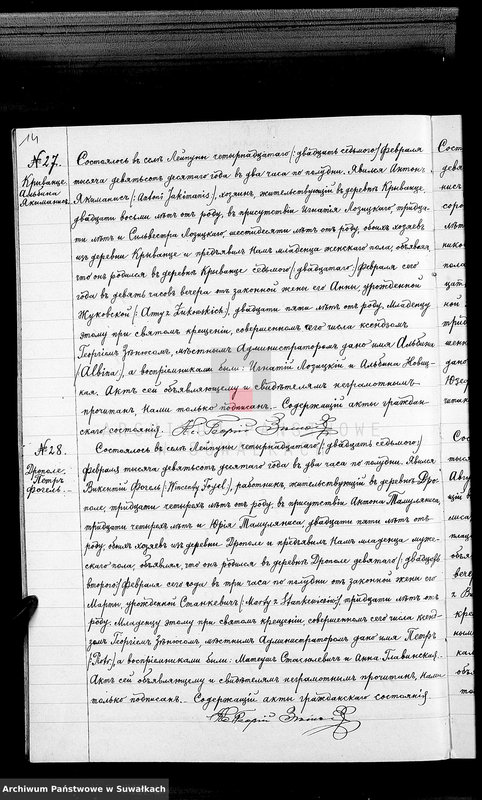 14
№ 27.
Криванце.
Альбина
Якиманисъ.
Состоялось въ селѣ Лейпуны четырнадцатаго (:двадцать седьмого:) Февраля
тысяча девятьсотъ десятаго года въ два часа по полудни. Явился Антонъ
Якиманисъ (:Antoni Jakimanis:), хозяинъ, жительствующій въ деревнѣ Криванце,
двадцати восьми лѣтъ отъ роду, въ присутствіи Игнатія Лозицкаго, тридца-
ти лѣтъ и Сильвестра Лозицкаго, шестидесяти лѣтъ отъ роду, обоихъ хозяевъ
изъ деревни Криванце и предъявилъ Намъ младенца женскаго пола, объявляя,
что онъ родился въ деревнѣ Криванце седьмого (:двадцатаго:) Февраля сего
года въ девять часовъ вечера отъ законной жены его Анны, урожденной
Жуковской двадцати пяти лѣтъ отъ роду. Младенцу
этому при святомъ крещеніи, совершенномъ сего числа ксендзомъ
Георгіемъ мѣстнымъ Администраторомъ дано имя Альбина
(Albina), а воспріемниками были: Игнатій Лозицкій и Альбина Новиц-
кая. Актъ сей объявляющему и свидѣтелямъ неграмотнымъ
прочитанъ, Нами только подписанъ. Содержащій акты граждан-
скаго состоянія.
№ 28.
Дрополе.
Петръ
Фогель.
Состоялось въ селѣ Лейпуны четырнадцатаго (:двадцать седьмого:)
Февраля тысяча девятьсотъ десятаго года въ два часа по полудни. Явился
Викентій Фогель (:Wincenty Fogel:), работникъ, жительствующій въ деревнѣ Дро-
поле, тридцати четырехъ лѣтъ отъ роду, въ присутствіи Антона Тамуляниса,
тридцати четырехъ лѣтъ и Юрія Тамуляниса, двадцати пяти лѣтъ отъ
роду, обоихъ хозяевъ изъ деревни Дрополе и предъявилъ Намъ младенца муже-
скаго пола, объявляя, что онъ родился въ деревнѣ Дрополе девятаго (:двадцать
второго:) Февраля сего года въ три часа по полудни отъ законной жены его
Марты, урожденной Станкевичъ (:Marty z Stankiewiczów:), тридцати лѣтъ отъ
роду. Младенцу этому при святомъ крещеніи, совершенномъ сего числа ксенд-
зомъ Георгіемъ мѣстнымъ Администраторомъ дано имя Петръ
(Piotr), а воспріемниками были: Матеушъ и Анна Главинская.
Актъ сей объявляющему и свидѣтелямъ неграмотнымъ прочитанъ, Нами
только подписанъ. Содержащій акты гражданскаго состоянія
Archiwum Państwowe w Suwałkach